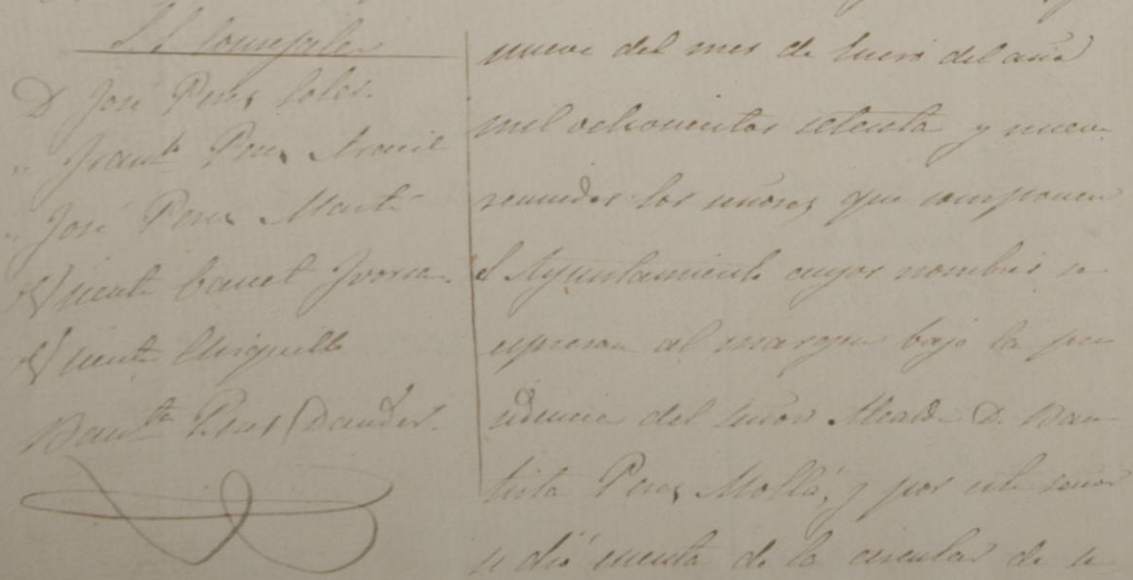 S. S. Concejales
D. José Peres Soler.
" Franco Peres Aracil
" José Peres Marti
" Vicente Canet Ivorra.
" Vicente Chiquillo
Bauta Peres Dauder.
nueve del mes de Enero del año
mil ochocientos setenta y nueve
reunidos los señores que componen
el Ayuntamiento cuyos nombres se
espresan al margen bajo la pre
sidencia del señor Alcalde D. Bau
tista Peres Mollá, y por este señor
se dió cuenta de la circular de